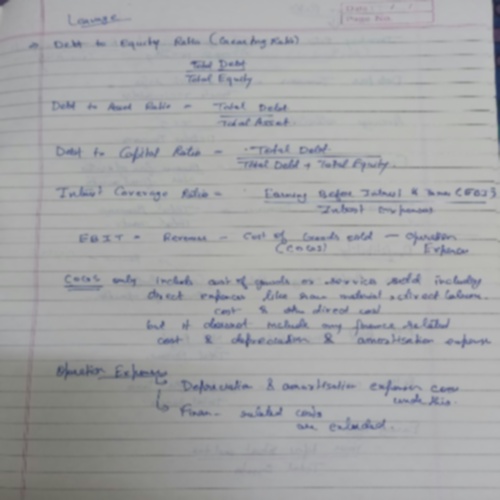 Leverage
Debt to Equity Ratio (Gearing Ratio)
Total Debt
Total Equity
Debt to Asset Ratio = Total Debt
Total Asset
Debt to Capital Ratio = Total Debt
Total Debt + Total Equity.
Interest Coverage Ratio = Earning Before Interest & Taxes (EBIT)
Interest expenses
EBIT = Revenue - Cost of Goods sold - Operation
(COGS) Expenses
COGS only include cost of goods or service sold including
direct expenses like raw material & direct labour
cost & other direct cost
but it doesnot include any finance related
cost & depreciation & amortisation expense
Operation Expenses
Depreciation & amortisation expenses come
under this.
Finan. related costs
are excluded.